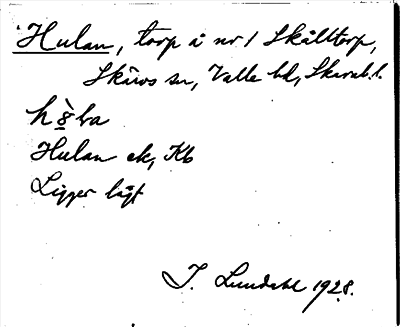 Hulan, torp å nr 1 Skålltorp,
Skärvs sn, Valle hd, Skarab. l.
Hulan ek, Kb
Ligger lågt
J. Lundahl 1928.